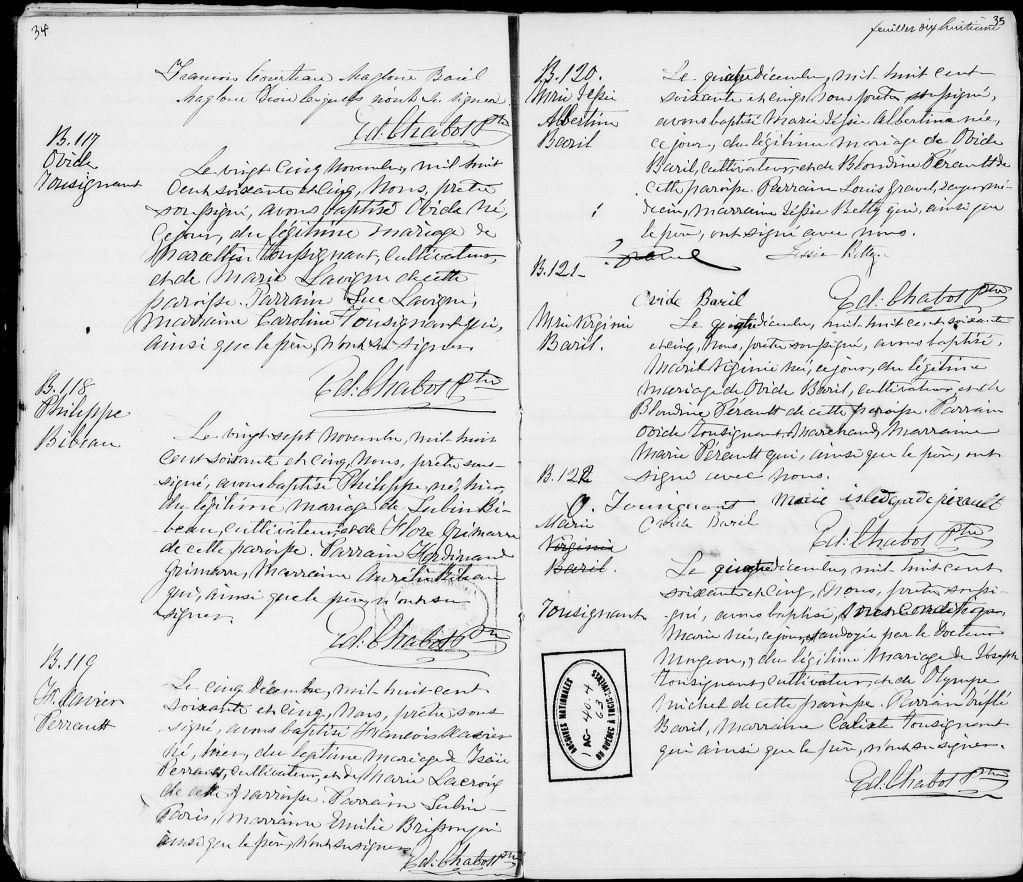 34
François Magloire Baril
Maglone signer.
Ed: Chabot Ptre
B. 117
Ovide
Tousignant
Le vingt cinq Novembre, mil huit
cent soixante et cinq, Nous, prêtre
soussigné, avons baptisé Ovide né,
ce jour, du légitime mariage de
Marcellin Tousignant, Cultivateur,
et de Marie Lavigne de cette
paroisse. Parrain Luc Lavigne,
Marraine Caroline Tousignant qui,
ainsi que le père, n'ont su signer.
Ed: Chabot Ptre
B. 118
Philippe
Bibeau
Le vingt sept Novembre, mil huit
cent soixante et cinq, Nous, prêtre sous-
signé, avons baptisé Philippe né, hier,
du légitime mariage de Lubin Bi-
beau, cultivateur, et de Flore Grimard
de cette paroisse. Parrain Ferdinand
Grimard, Marraine Aurélie Bibeau
qui, ainsi que le père, n'ont su
signer.
Ed: Chabot Ptre
B. 119
Fr. Xavier
Perrault
Le cinq Décembre, mil huit cent
soixante et cinq, Nous, prêtre sous
signé, avons baptisé François Xavier
né, hier, du légitime mariage d'Isaïe
Perrault, cultivateur, et de Marie Lacroix
de cette paroisse. Parrain Lubin
Paris, Marraine Emilie Brisson qui
ainsi que le père, n'ont su signer
Ed: Chabot Ptre
35
feuillet dix huitième
B. 120.
Mrie Jessie
Albertine
Baril
Le quatre décembre, mil huit cent
soixante et cinq, Nous prêtre soussigné,
avons baptisé Marie Jessie Albertine née,
ce jour, du légitime mariage de Ovide
Baril, cultivateur, et de Blondine Perault de
cette paroisse. Parrain Louis Gravel, Ecuyer mé-
decin, Marraine Jessie Betty qui, ainsi que
le père, ont signé avec nous.
Gravel Jessie Betty
B. 121
Ovide Baril Ed: Chabot Ptre
Mrie Virginie
Baril.
Le quatre décembre, mil huit cent soixante
et cinq, Nous, prêtre soussigné, avons baptisé,
Marie Virginie née, ce jour, du légitime
mariage de Ovide Baril, cultivateur, et de
Blondine Perault de cette paroisse. Parrain
Ovide Tousignant, Marchand, Marraine
Marie Pérault qui, ainsi que le père, ont
signé avec nous.
O. Tousignant Marie perault
Ovide Baril
Ed: Chabot Ptre
B. 122
Marie
Virginie
Baril.
Tousignant
Le quatre décembre, mil huit cent
soixante et cinq, Nous, prêtre soussi-
gné, avons baptisé, sous condition
Marie née, ce jour, et ondoyée par le Docteur
du légitime Mariage de Joseph
Tousignant, cultivateur, et de Olympe
Michel de cette paroisse. Parrain Tréflé
Baril, Marraine Calixte Tousignant
qui ainsi que le père, n'ont su signer.
Ed: Chabot Ptre
ARCHIVES NATIONALES
DU QUÉBEC À TROIS-RIVIÈRES